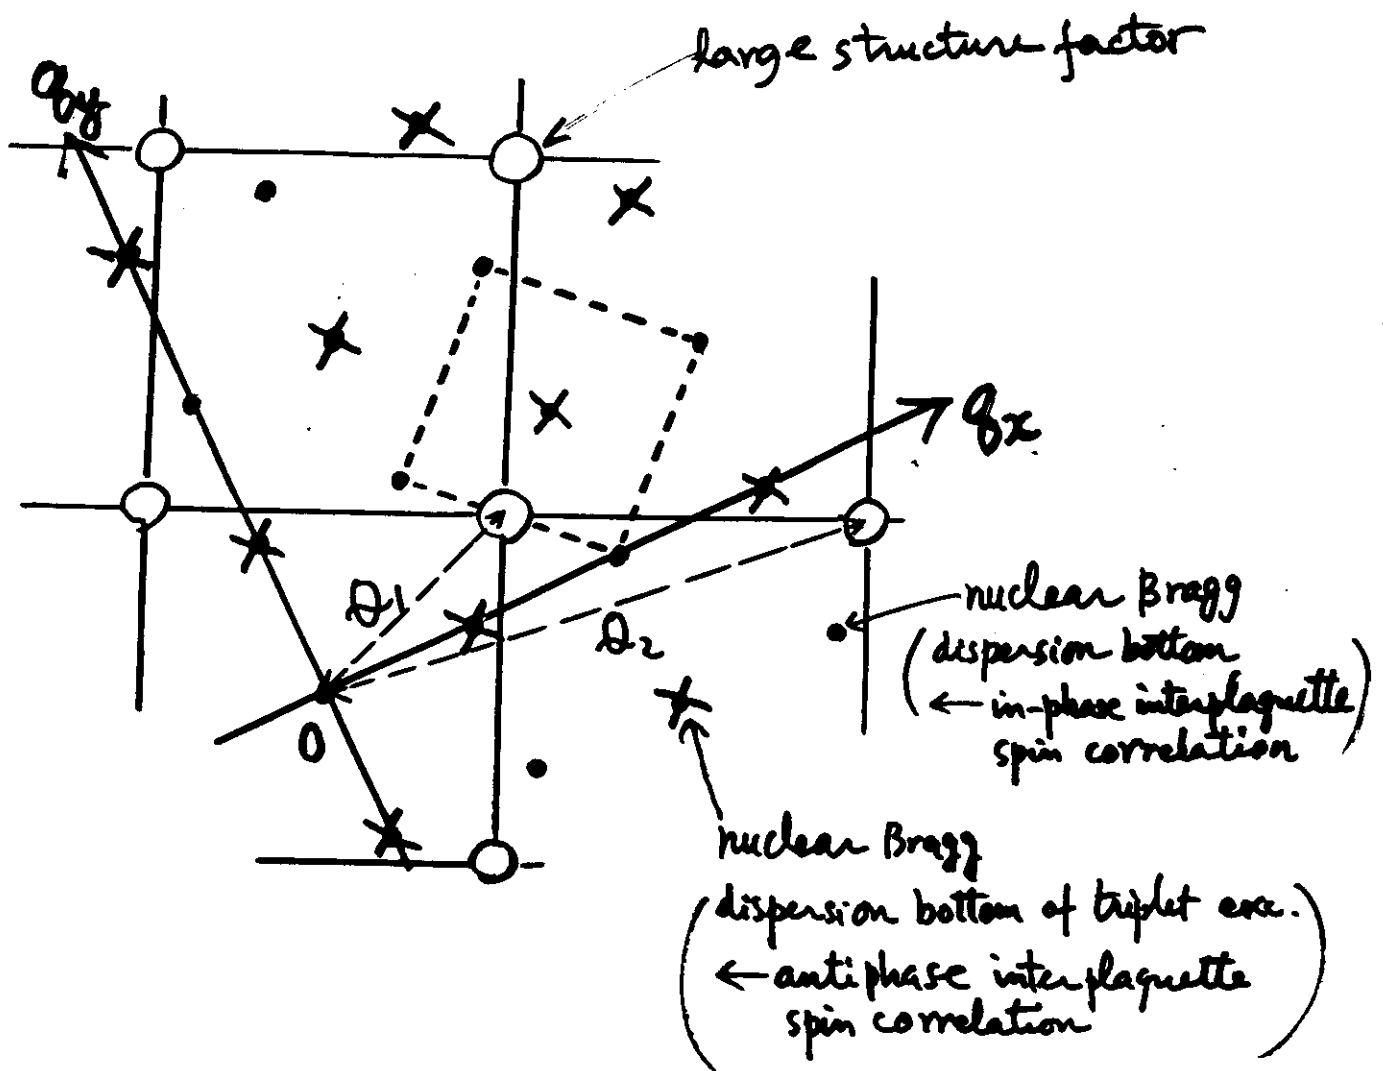 large structure factor
qy
qx
Q1
Q2
O
nuclear Bragg
(dispersion bottom
← in-phase interplaquette
spin correlation)
nuclear Bragg
(dispersion bottom of triplet exc.
← antiphase interplaquette
spin correlation)